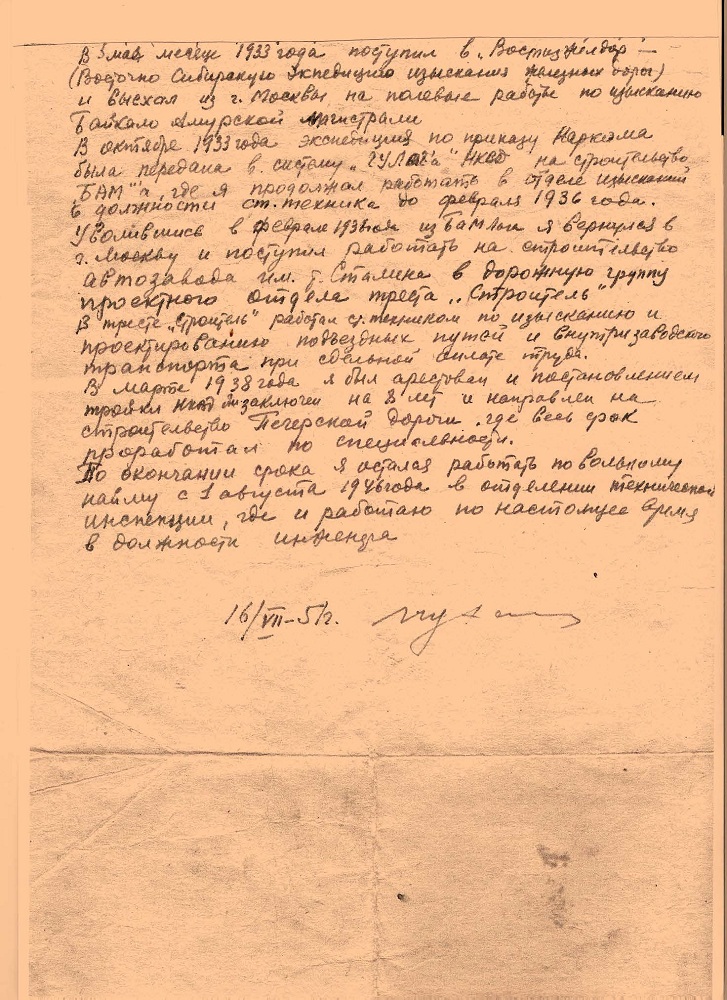 В мае месяце 1933 года поступил в „Востизжелдор" —
(Восточно Сибирскую Экпедицию изыскания железных дорог)
и выехал из г. Москвы на полевые работы по изысканию
Байкало Амурской Магистрали
В октябре 1933 года экспедиция по приказу Наркома
была передана в систему „ГУЛАГа" НКВД на строительство
БАМ"а где я продолжал работать в отделе изысканий
в должности ст. техника до февраля 1936 года.
Уволившись в феврале 1936 года из БамЛага я вернулся в
г. Москву и поступил работать на строительство
автозавода им. т. Сталина в дорожную группу
проектного отдела треста „Строитель"
В тресте „Строитель" работал ст. техником по изысканию и
проектированию подъездных путей и внутризаводского
транспорта при сдельной оплате труда.
В марте 1938 года я был арестован и постановлением
тройки НКВД заключен на 8 лет и направлен на
строительство Печерской дороги где весь срок
проработал по специальности.
По окончании срока я остался работать по вольному
найму с 1 августа 1946 года в отделении технической
инспекции, где и работаю по настоящее время
в должности инженера
16/VII–51г.